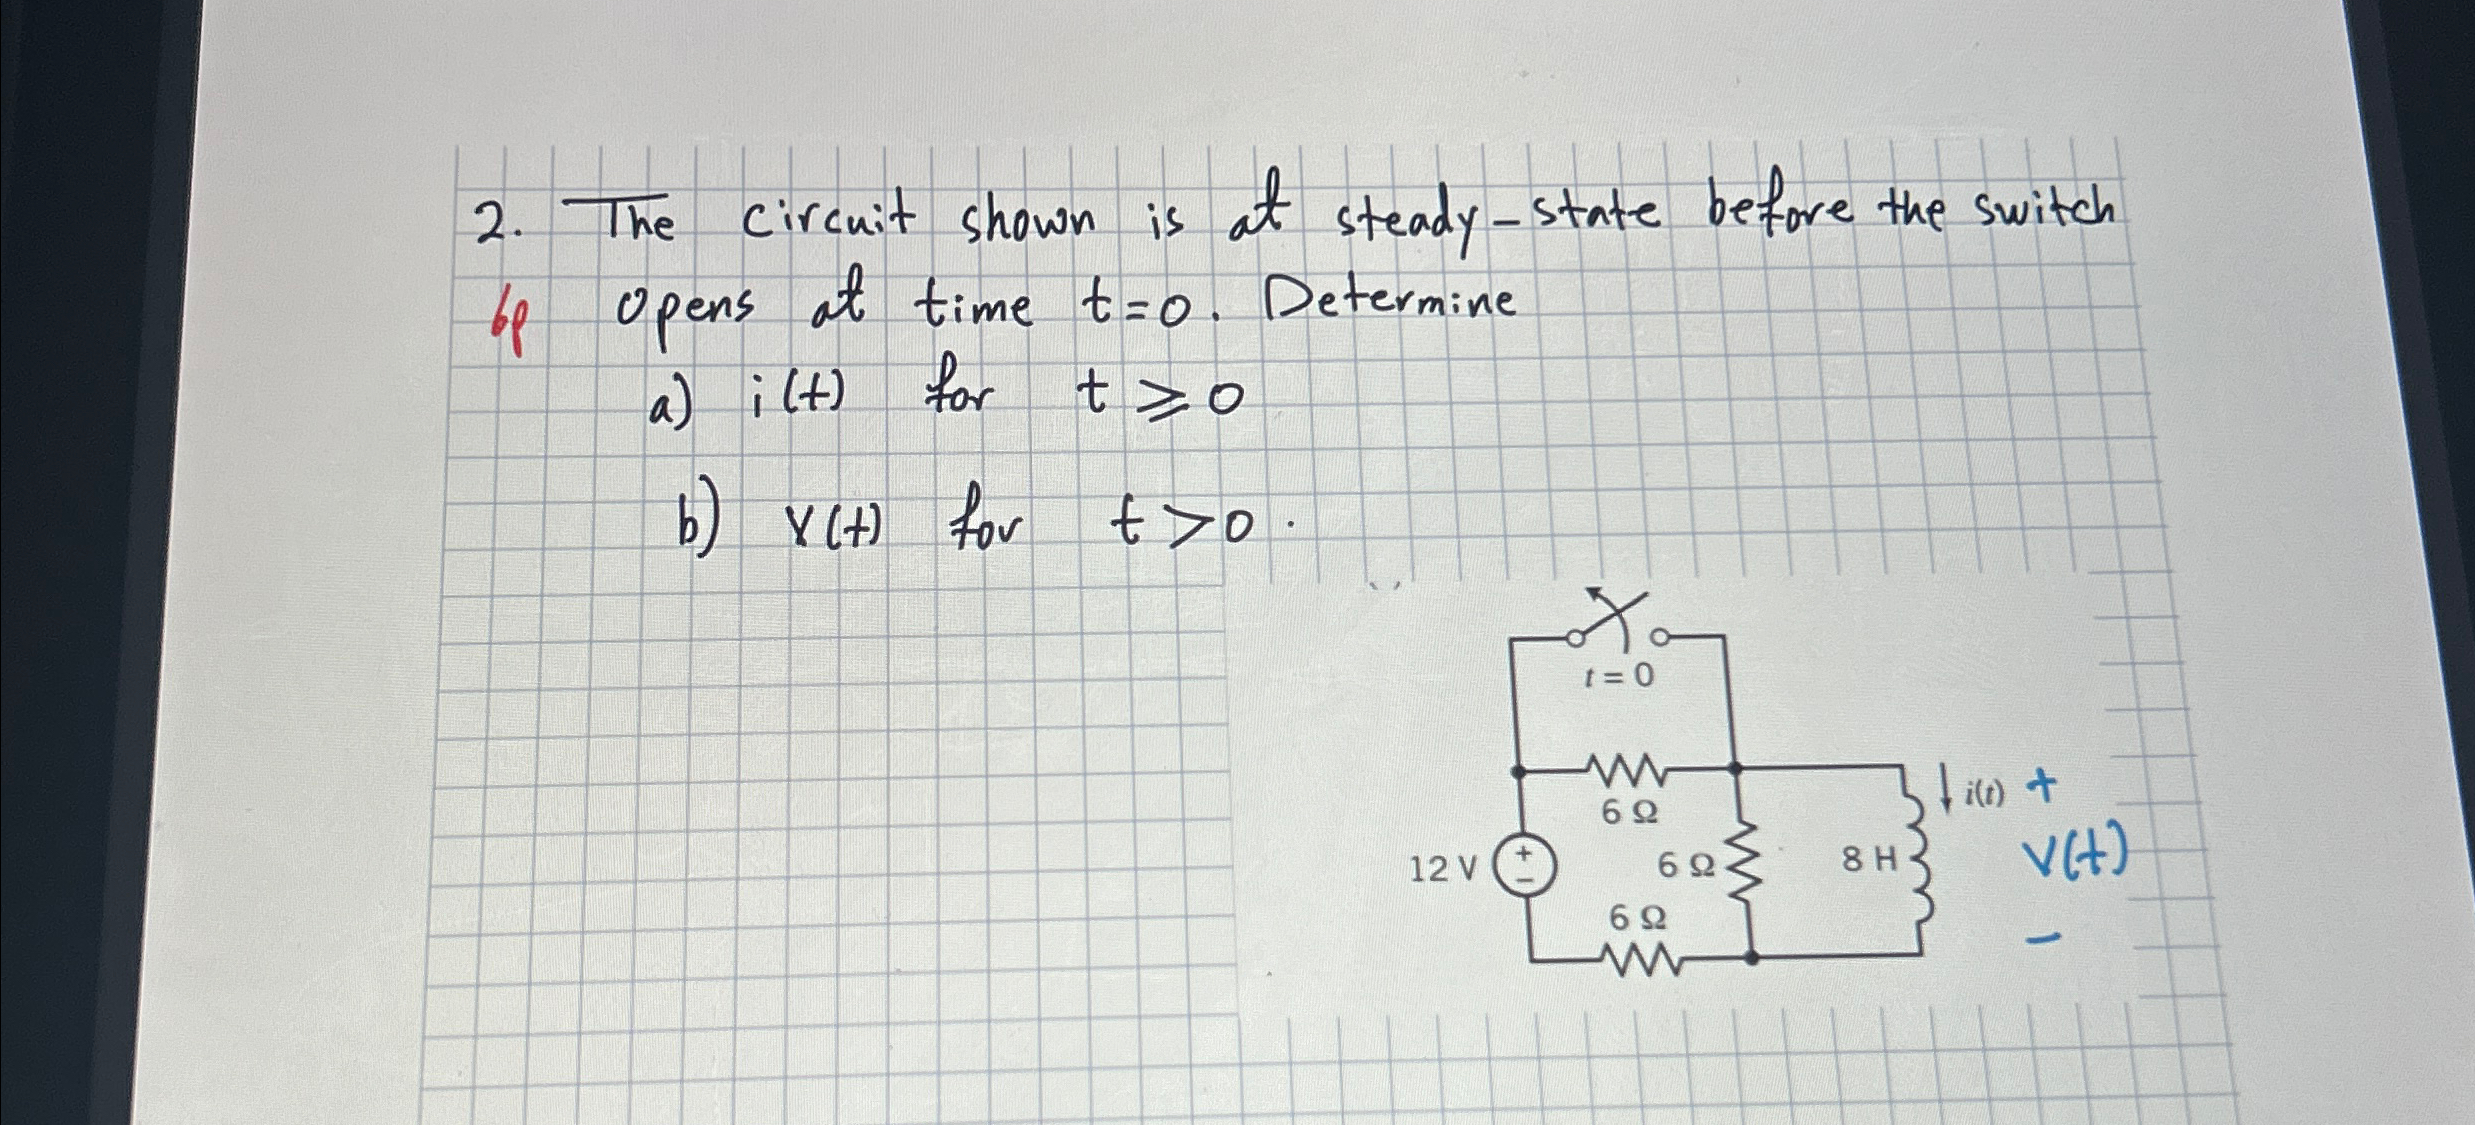 2. The circuit shown is at steady-state before the switch
6p opens at time t=0. Determine
a) i(t) for t ⩾ 0
b) v(t) for t > 0.
t = 0
6 Ω
i(t) +
12 V
+
−
6 Ω
8 H
v(t)
6 Ω
−